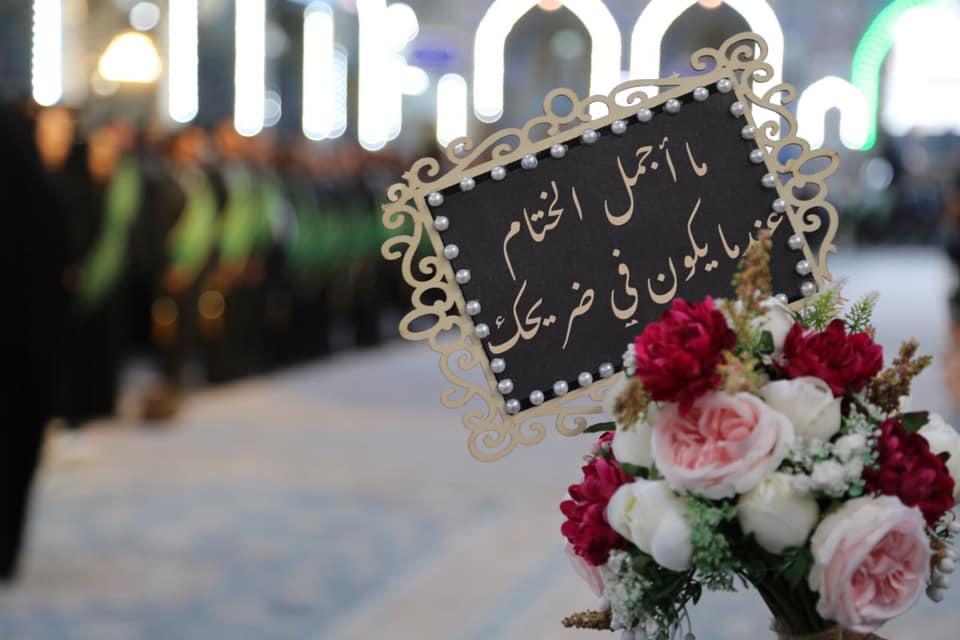 ما أجمل الختام
عندما يكون في ضريحك